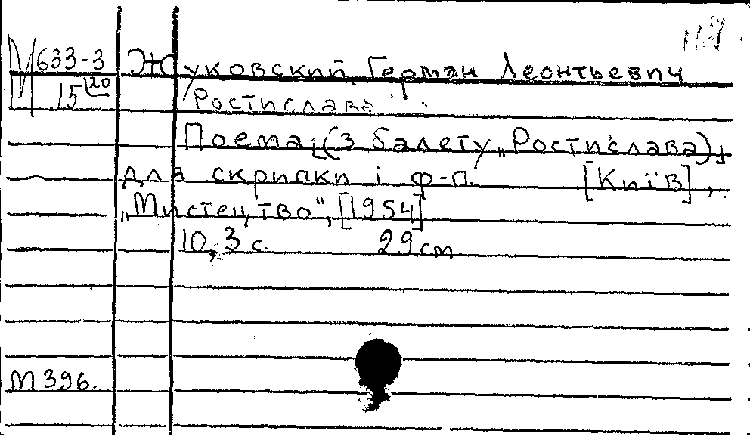 М633-3 Жуковский, Герман Леонтьевич
15 20 Ростислава
Поема, (з балету „Ростислава),
для скрипки і ф-п. [Київ],
„Мистецтво", [1954]
10, 3 с. 29 см
М 396.